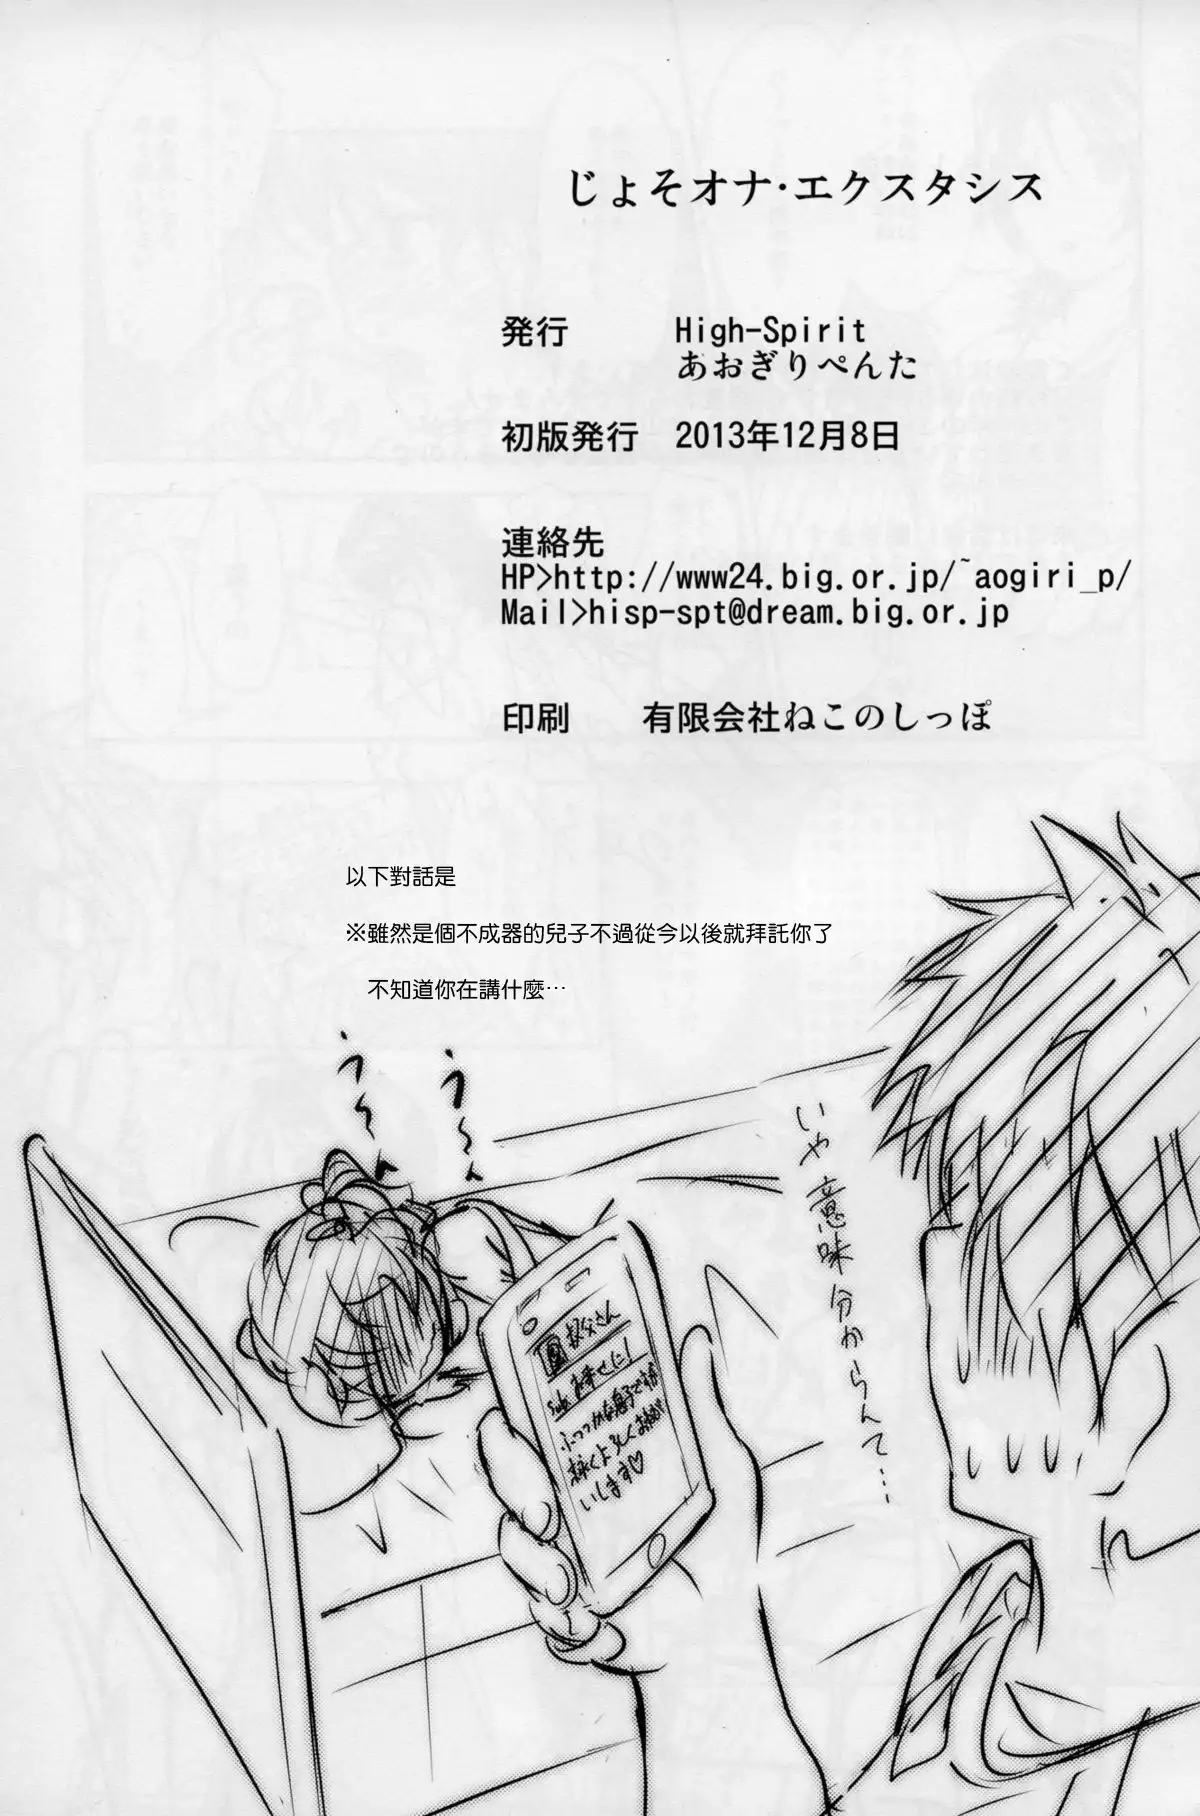 じょそオナ・エクスタシス
発行 High-Spirit
あおぎりぺんた
初版発行 2013年12月8日
連絡先
HP>http://www24.big.or.jp/~aogiri_p/
Mail>hisp-spt@dream.big.or.jp
印刷 有限会社ねこのしっぽ
以下對話是
※雖然是個不成器的兒子不過從今以後就拜託你了
不知道你在講什麼…
う〜
う〜
いや意味分からんて…
叔父さん
Sub. お幸せに!
ふつつかな息子ですが
末永くよろしくおねが
いします♡